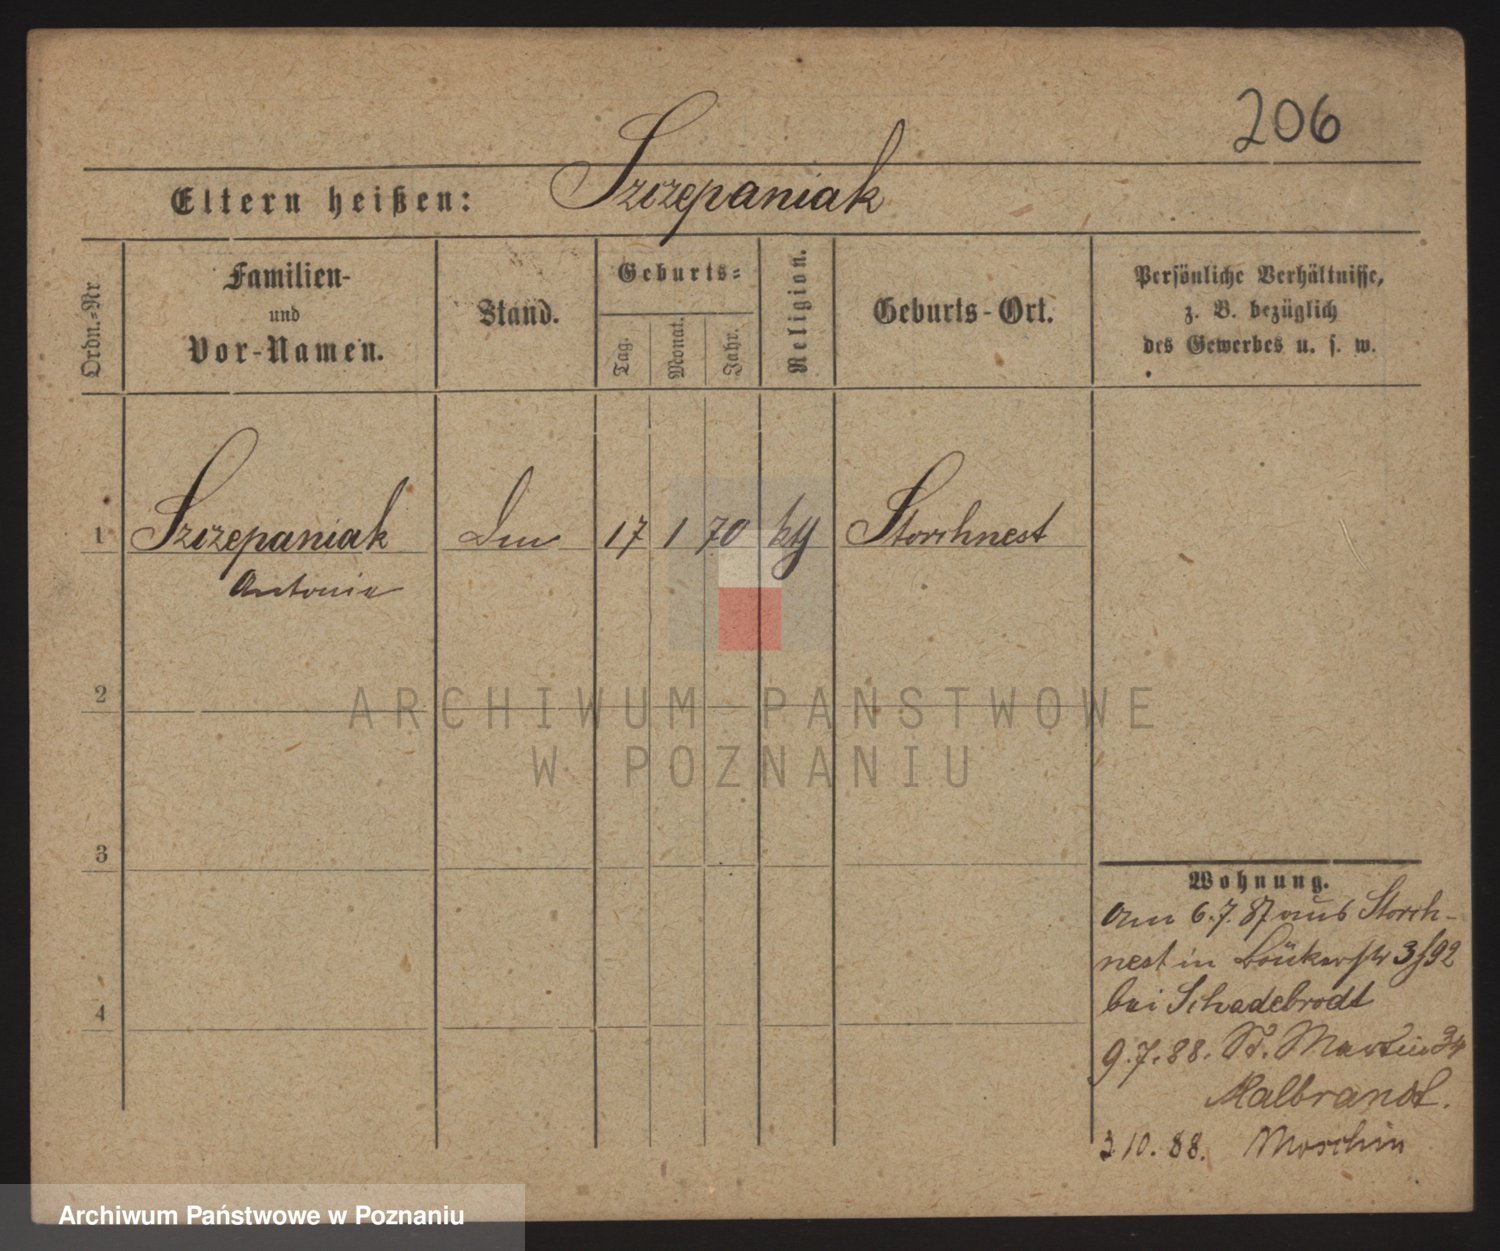 206
Eltern heißen: Szczepaniak
Ordn.-Nr.
Familien-
und
Vor-Namen.
Stand.
Geburts-
Tag.
Monat.
Jahr.
Religion.
Geburts-Ort.
Persönliche Verhältnisse,
z. B. bezüglich
des Gewerbes u. s. w.
1 Szczepaniak 17 1 70 Storchnest
Antonie
2
ARCHIWUM PAŃSTWOWE
W POZNANIU
3
Wohnung.
Am 6.7.87 aus Storch-
nest in
bei Schadebrodt
4
9.7.88. St. Martin 34
Malbrandt.
3 10. 88. Moschin
Archiwum Państwowe w Poznaniu